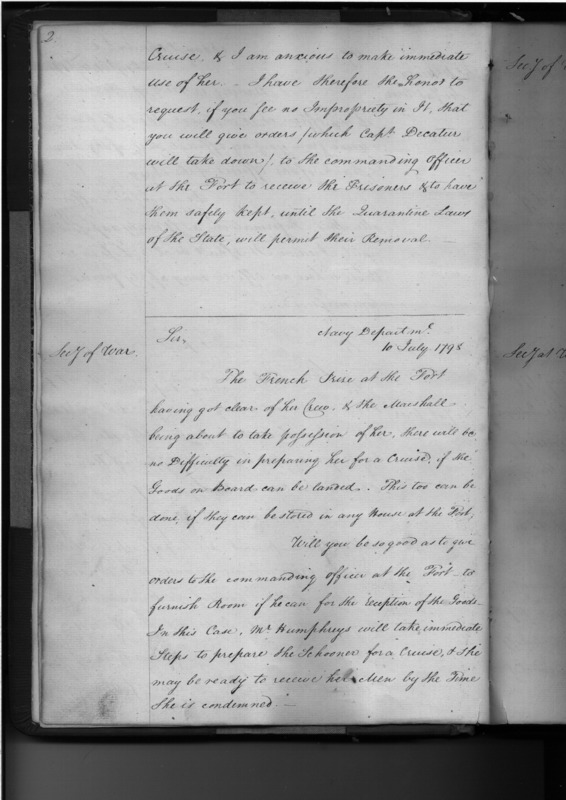 2
Cruise, & I am anxious to make immediate
use of her. - I have therefore the Honor to
request, if you see no Impropriety in It, that
you will give orders (which Capt. Decatur
will take down) to the commanding officer
at the Fort to receive the Prisoners & to have
them safely kept, until the Quarantine Laws
of the State, will permit their Removal. -
Navy Departmt.
Secy of War. Sir,
10 July 1798
The French Prise at the Fort
having got clear of her Crew, & the Marshall
being about to take possession of her, there will be
no Difficulty in preparing her for a Cruise, if the
Goods on Board can be landed. This too can be
done, if they can be stored in any House at the Fort.
Will you be so good as to give
orders to the commanding officer at the Fort - to
furnish Room if he can for the reception of the Goods -
In this Case, Mr. Humphreys will take immediate
Steps to prepare the Schooner for a Cruise, & She
may be ready to receive her Men by the Time
She is condemned. -
Secy of
Secy at